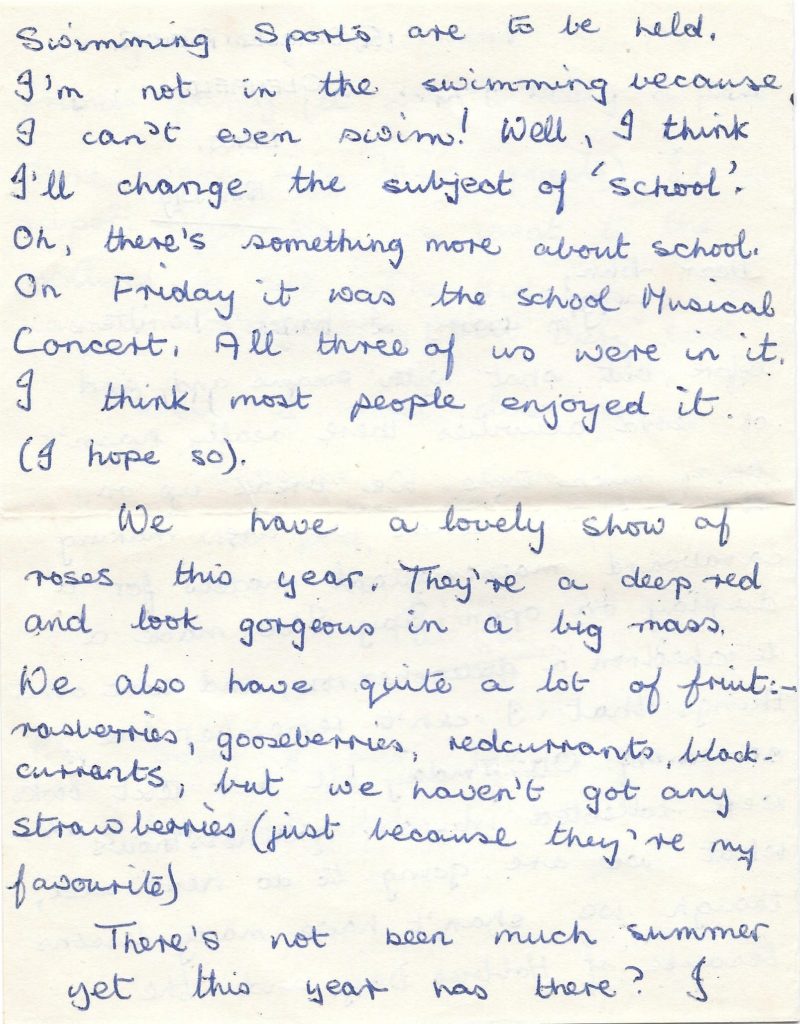 Swimming Sports are to be held.
I'm not in the swimming because,
I can't even swim! Well, I think
I'll change the subject of 'school'.
Oh, there's something more about school.
On Friday it was the school Musical
Concert. All three of us were in it.
I think most people enjoyed it.
(I hope so).
We have a lovely show of
roses this year. They're a deep red
and look gorgeous in a big mass.
We also have quite a lot of fruit:-
rasberries, gooseberries, redcurrants, black-
currants, but we haven't got any
strawberries (just because they're my
favourite)
There's not been much summer
yet this year has there? I